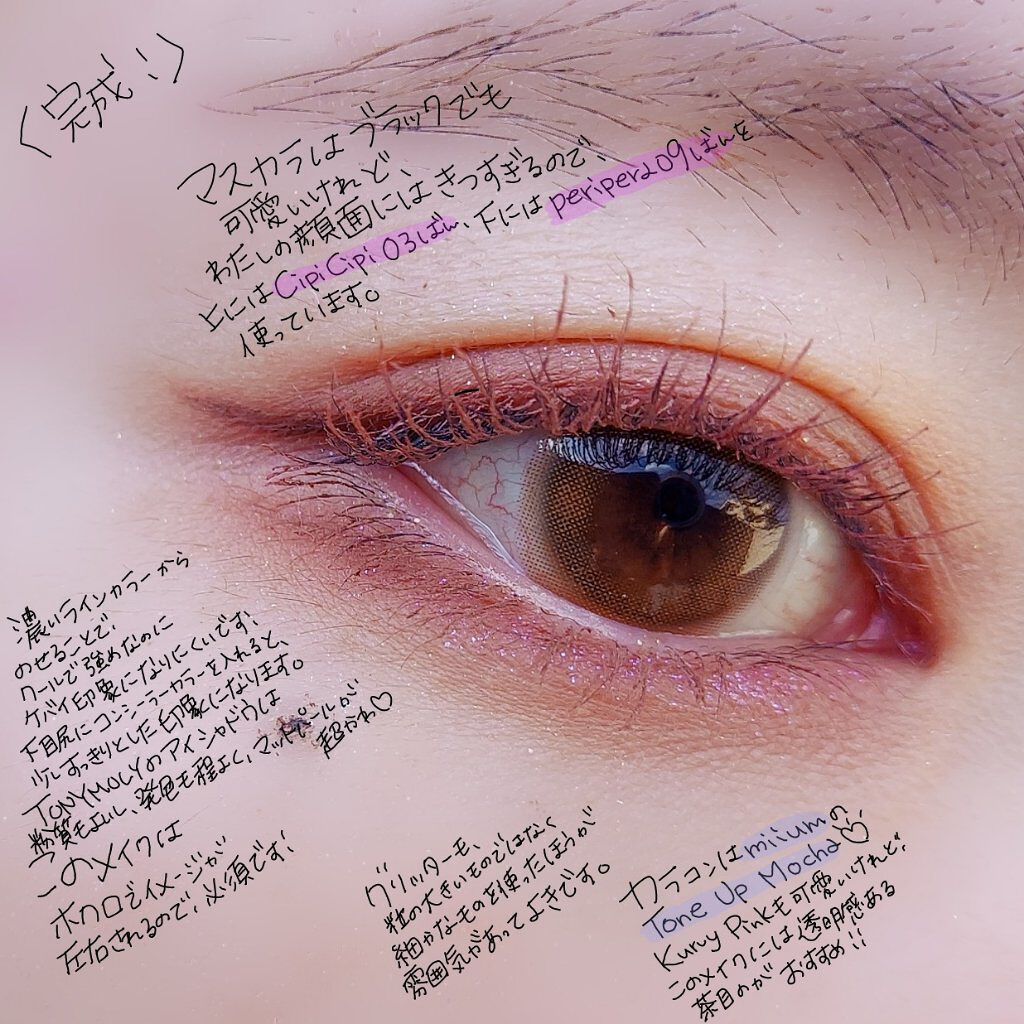 〈完成!〉
マスカラはブラックでも
可愛いけれど、
わたしの顔面にはきつすぎるので、
上にはCipiCipi 03ばん、下にはperipera09ばんを
使っています。
濃いラインカラーから
のせることで、
クールで強めなのに
ケバイ印象になりにくいです、
下目尻にコンシーラーカラーを入れると、
少しすっきりとした印象になります。
TONYMOLYのアイシャドウは
粉質もよいし、発色も程よく、マットパールが
超かわ♡
このメイクは
ホクロでイメージが
左右されるので、必須です!
グリッターも、
粒の大きいものではなく
細かなものを使ったほうが
雰囲気があってよきです。
カラコンはmiiumの
Tone Up Mocha♡
Kurvy Pinkも可愛いけれど、
このメイクには透明感ある
茶目のが おすすめ!!